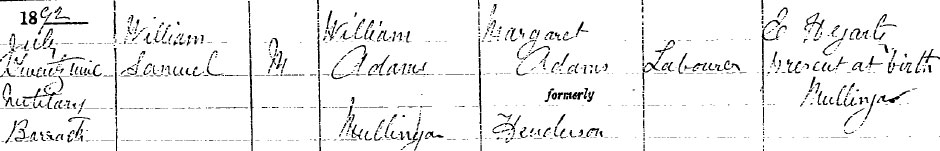 1892
July William William Margaret E Hegarty
Twenty nine Samuel M Adams Adams Labourer present at birth
Military formerly Mullingar
Barracks Mullingar Henderson